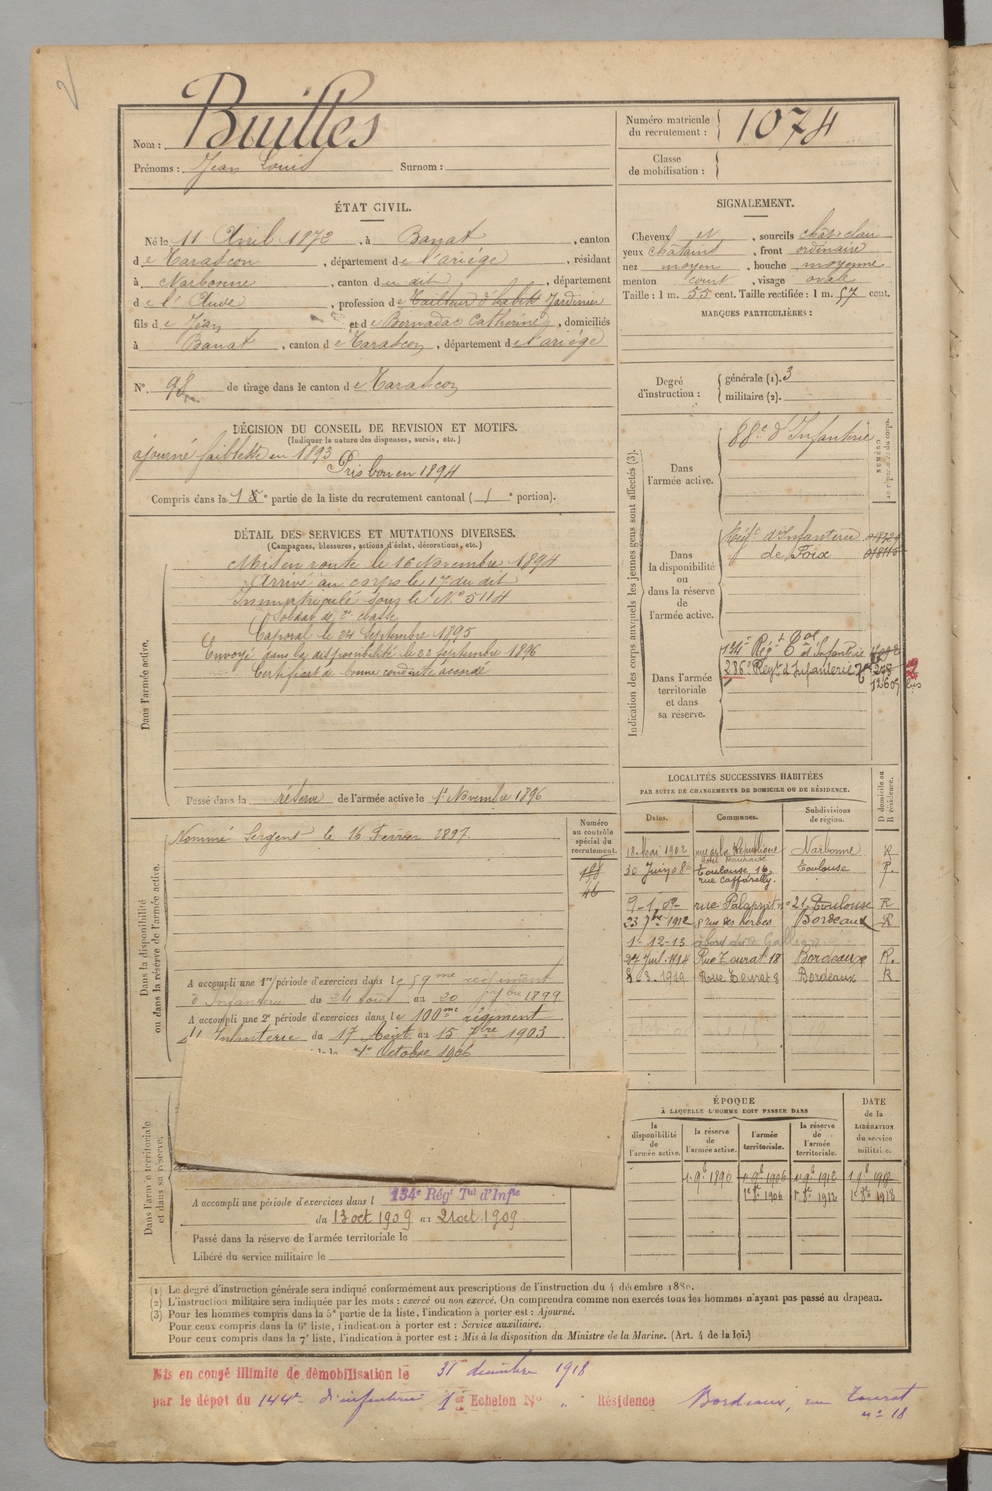 Nom : Builles
Prénoms : Jean Louis Surnom :
Numéro matricule du recrutement : 1074
Classe de mobilisation :
ÉTAT CIVIL.
Né le 11 Avril 1873, à Banat, canton
de Tarascon, département de l'ariège, résidant
à Narbonne, canton du dit, département
de l'Aude, profession de Tailleur d'habits Jardinier
fils de Jean et de Bernadac Catherine, domiciliés
à Banat, canton de Tarascon, département de l'ariège
N° 98 de tirage dans le canton de Tarascon
SIGNALEMENT.
Cheveux et, sourcils chât clair
yeux châtains, front ordinaire
nez moyen, bouche moyenne
menton court, visage ovale
Taille : 1 m. 55 cent. Taille rectifiée : 1 m. 57 cent.
MARQUES PARTICULIÈRES :
Degré d'instruction : générale (1). 3
militaire (2).
DÉCISION DU CONSEIL DE REVISION ET MOTIFS.
(Indiquer la nature des dispenses, sursis, etc.)
ajourné faiblesse en 1893
Pris bon en 1894
Compris dans la 1e partie de la liste du recrutement cantonal ( 1 e portion).
DÉTAIL DES SERVICES ET MUTATIONS DIVERSES.
(Campagnes, blessures, actions d'éclat, décorations, etc.)
Dans l'armée active.
Mis en route le 16 Novembre 1894
Arrivé au corps le 17 du dit
Immatriculé sous le N° 5114
Soldat de 2e classe
Caporal le 24 Septembre 1895
Envoyé dans la disponibilité le 22 Septembre 1896
Certificat de bonne conduite accordé
Passé dans la réserve de l'armée active le 1r Novembre 1896
Indication des corps auxquels les jeunes gens sont affectés (3).
NUMÉRO
Dans l'armée active.
88e d'Infanterie
Dans la disponibilité ou dans la réserve de l'armée active.
Régt d'Infanterie
de Foix
Dans l'armée territoriale et dans sa réserve.
134e Régt Tal d'Infanterie
286e Regt d'Infanterie
Dans la disponibilité ou dans la réserve de l'armée active.
Nommé Sergent le 16 Fevrier 1897
Numéro au contrôle spécial du recrutement.
A accompli une 1re période d'exercices dans le 59me régiment
d'Infanterie du 24 août au 20 7bre 1899
A accompli une 2e période d'exercices dans le 100me régiment
d'Infanterie du 17 Août au 15 7bre 1903
1er Octobre 1906
LOCALITÉS SUCCESSIVES HABITÉES
PAR SUITE DE CHANGEMENTS DE DOMICILE OU DE RÉSIDENCE.
Dates. Communes. Subdivisions de région. D domicile ou R résidence.
18 Mai 1902 rue de la République Narbonne R
30 Juin Toulouse, 16, rue Caffarelly. Toulouse R.
9-1 rue Palaprat n° 21 Toulouse R
23 7bre 1912 8 rue des herbes Bordeaux R
1-12-13
24 Juil. 1914 Rue Tourat 18 Bordeaux R.
Rue Tourat 8 Bordeaux R
Dans l'armée territoriale et dans sa réserve.
A accompli une période d'exercices dans l 134e Régt Tal d'Infie
du 13 oct 1909 au 21 oct 1909
Passé dans la réserve de l'armée territoriale le
Libéré du service militaire le
ÉPOQUE
À LAQUELLE L'HOMME DOIT PASSER DANS
la disponibilité de l'armée active.
la réserve de l'armée active.
l'armée territoriale.
la réserve de l'armée territoriale.
DATE de la LIBÉRATION du service militaire.
1r 9b 1896 1r 9b 1906 1r 9b 1912 1r 9b 1918
1er 8e 1906 1r 8e 1912 1er 8e 1918
(1) Le degré d'instruction générale sera indiqué conformément aux prescriptions de l'instruction du 4 décembre 1889.
(2) L'instruction militaire sera indiquée par les mots : exercé ou non exercé. On comprendra comme non exercés tous les hommes n'ayant pas passé au drapeau.
(3) Pour les hommes compris dans la 5e partie de la liste, l'indication à porter est : Ajourné.
Pour ceux compris dans la 6e liste, l'indication à porter est : Service auxiliaire.
Pour ceux compris dans la 7e liste, l'indication à porter est : Mis à la disposition du Ministre de la Marine. (Art. 4 de la loi.)
Mis en congé illimité de démobilisation le 31 décembre 1918
par le dépôt du 144e d'infanterie 1er Echelon N° " Résidence Bordeaux, rue Tourat
n° 18